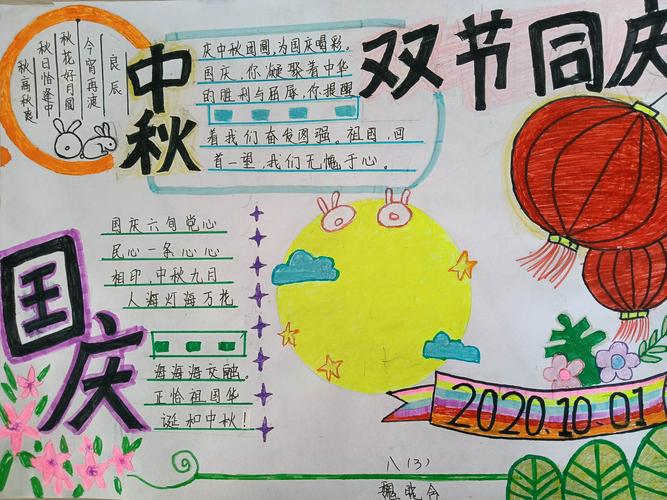 双节同庆
良辰
今宵再凝
秋花好月圆
秋日恰逢中
秋高秋爽
中秋
庆中秋团圆,为国庆喝彩。
国庆,你凝聚着中华
的胜利与屈辱,你提醒
着我们奋发图强。祖国,回
首一望,我们无愧于心。
国庆六旬党心
民心一条心心
相印,中秋九月
人海灯海万花
海海海交融。
正恰祖国华
诞和中秋!
国庆
2020.10.01
八(3)